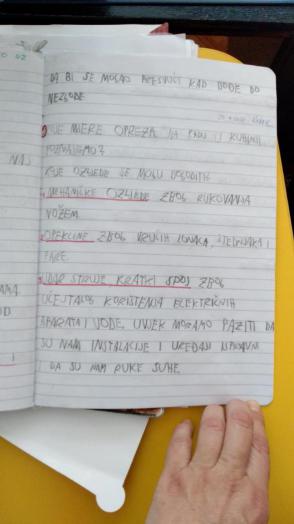 DA BI SE MOGAO KAD DOĐE DO
NEZGODE.
KOJE MJERE OPREZA NA RADU U KUHINJI
POZNAJEMO?
KOJE OZLJEDE SE MOGU DOGODITI
MEHANIČKE OZLJEDE ZBOG RUKOVANJA
NOŽEM.
OPEKLINE ZBOG VRUĆIH LONACA, ŠTEDNJAKA I
PARE.
UDAR STRUJE KRATKI SPOJ ZBOG
UČESTALOG KORIŠTENJA ELEKTRIČNIH
APARATA I VODE. UVIJEK MORAMO PAZITI DA
SU NAM INSTALACIJE I UREĐAJI ISPRAVNI
DA SU NAM RUKE SUHE.